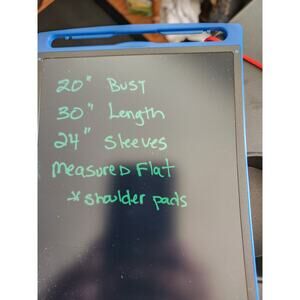 20" Bust
30" Length
24" Sleeves
Measured Flat
* shoulder pads